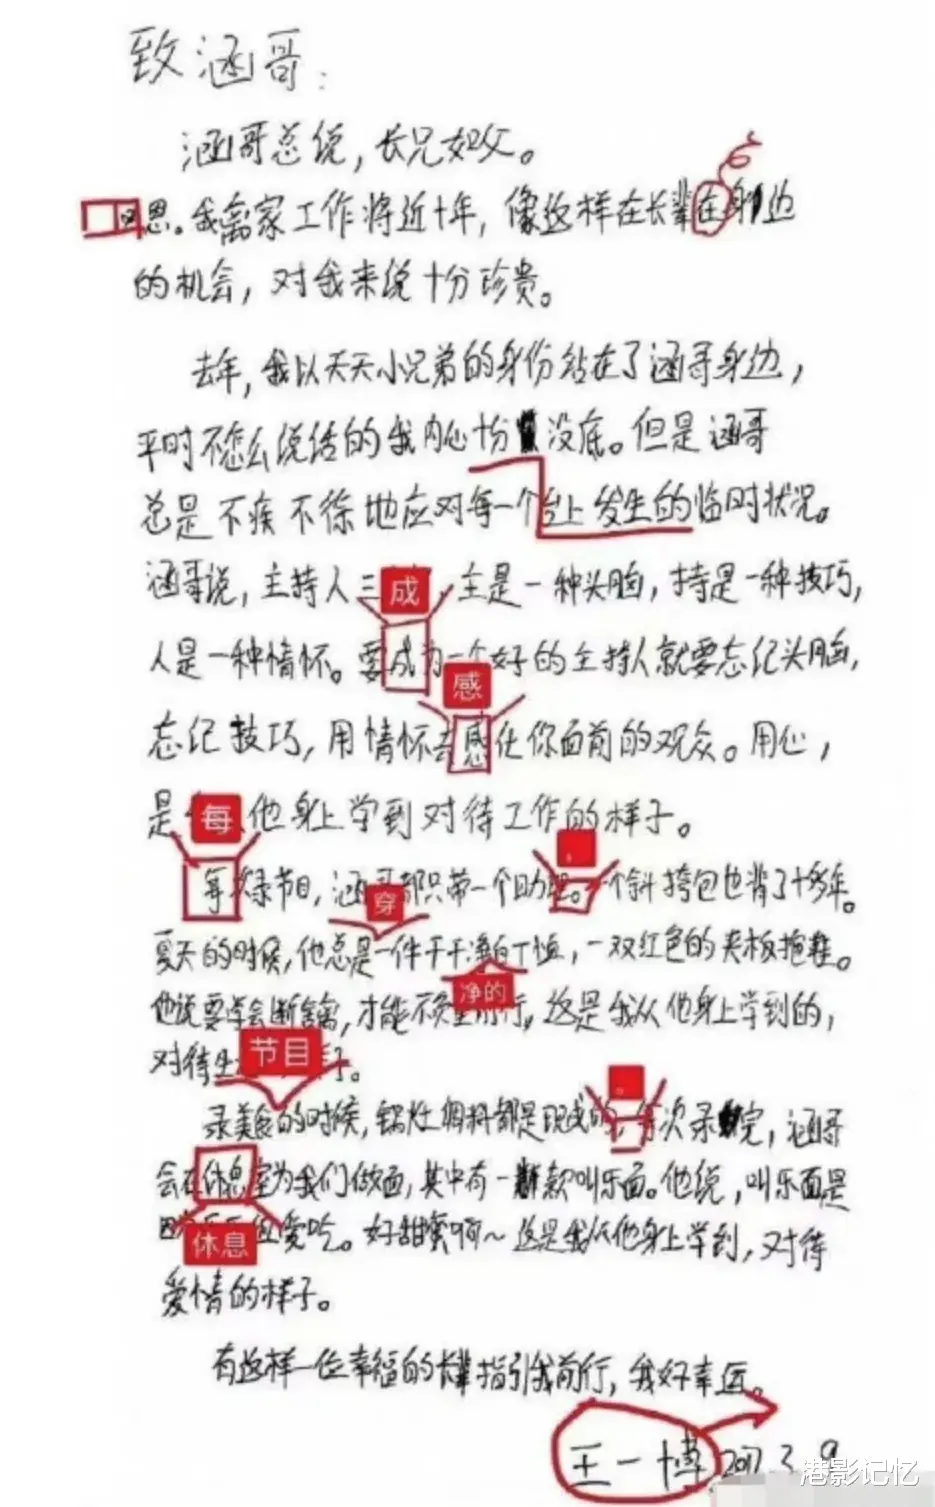 致涵哥：
涵哥总说，长兄如父。
恩。我离家工作将近十年，像这样在长辈在身边
的机会，对我来说十分珍贵。
去年，我以天天小兄弟的身份站在了涵哥身边，
平时不怎么说话的我内心十分没底。但是涵哥
总是不疾不徐地应对每一个台上发生的临时状况。
成
涵哥说，主持人三，主是一种头脑，持是一种技巧，
人是一种情怀。要成为一个好的主持人就要忘记头脑，
感
忘记技巧，用情怀去感化你面前的观众。用心，
每
是他身上学到对待工作的样子。
，
每次录节目，涵哥都只带一个助理。一个斜挎包也背了十多年。
穿
夏天的时候，他总是一件干干净白T恤，一双红色的夹板拖鞋。
净的
他说要学会断舍离，才能不负重前行。这是我从他身上学到的，
节目
对待
。
录美食的时候，锅灶调料都是现成的，每次录完，涵哥
会在休息室为我们做面，其中有一款叫乐面。他说，叫乐面是
休息
爱吃。好甜蜜啊～这是我从他身上学到，对待
爱情的样子。
有这样一位幸福的长辈指引我前行，我好幸运。
王一博 2017.3.9
港影记忆